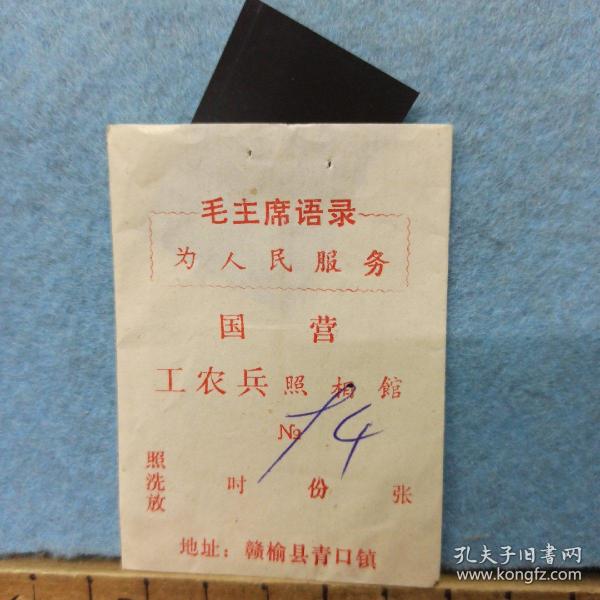 毛主席语录
为人民服务
国营
工农兵照相馆
№ 14
照洗放 时 份 张
地址：赣榆县青口镇
孔夫子旧书网
www.kongfz.com